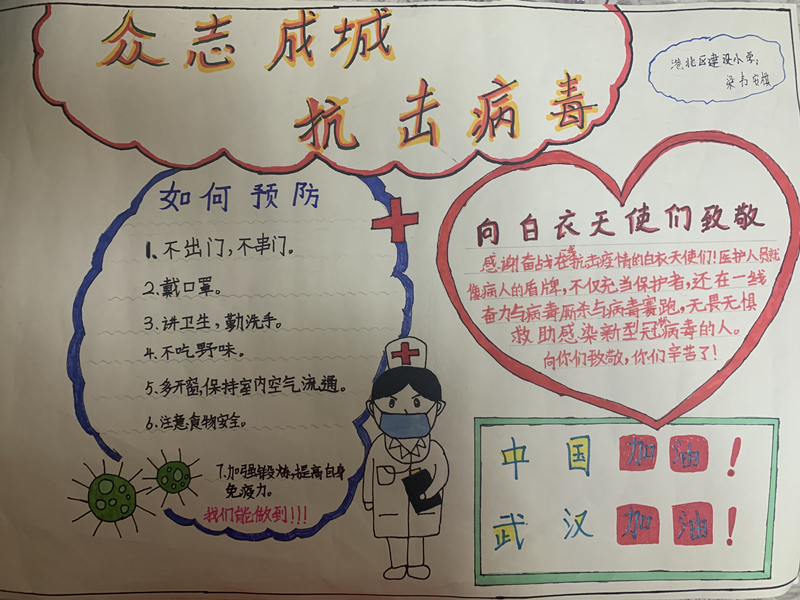 众志成城
抗击病毒
港北区建设小学:
如何预防
1.不出门,不串门。
2.戴口罩。
3.讲卫生,勤洗手。
4.不吃野味。
5.多开窗,保持室内空气流通。
6.注意食物安全。
7.加强锻炼,提高自身
免疫力。
我们能做到!!!
向白衣天使们致敬
感谢奋战在抗击疫情的白衣天使们!医护人员就
像病人的盾牌,不仅充当保护者,还在一线
奋力与病毒厮杀与病毒赛跑,无畏无惧
救助感染新型冠状病毒的人。
向你们致敬,你们辛苦了!
中国加油!
武汉加油!